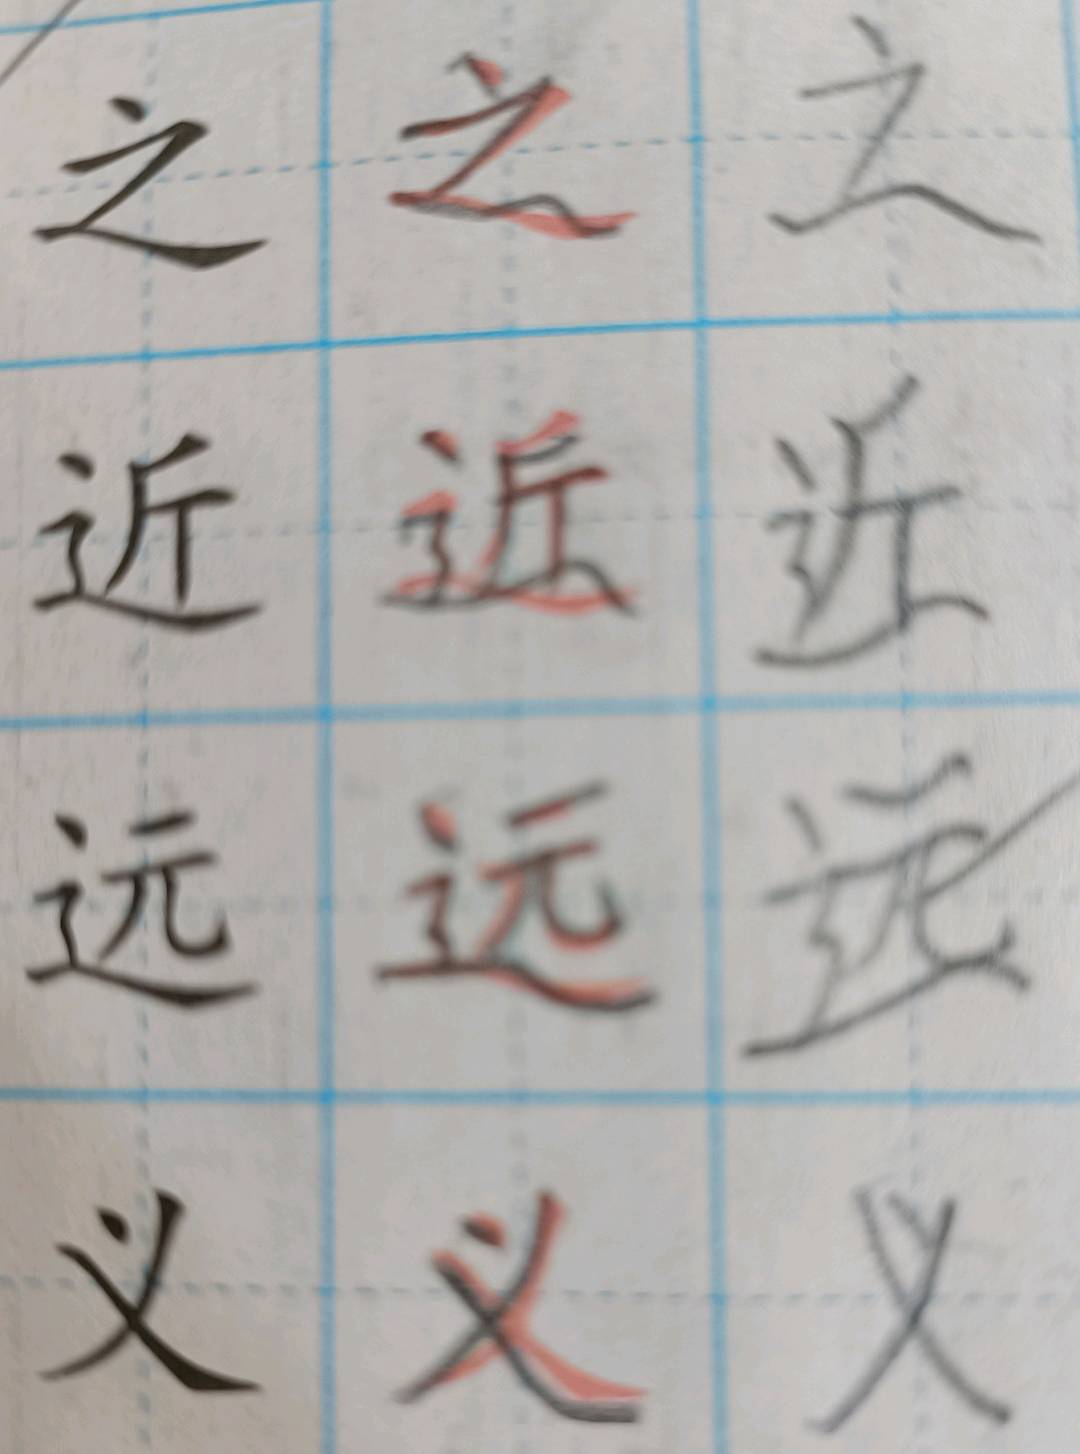 之 之 之
近 近 近
远 远 远
义 义 义